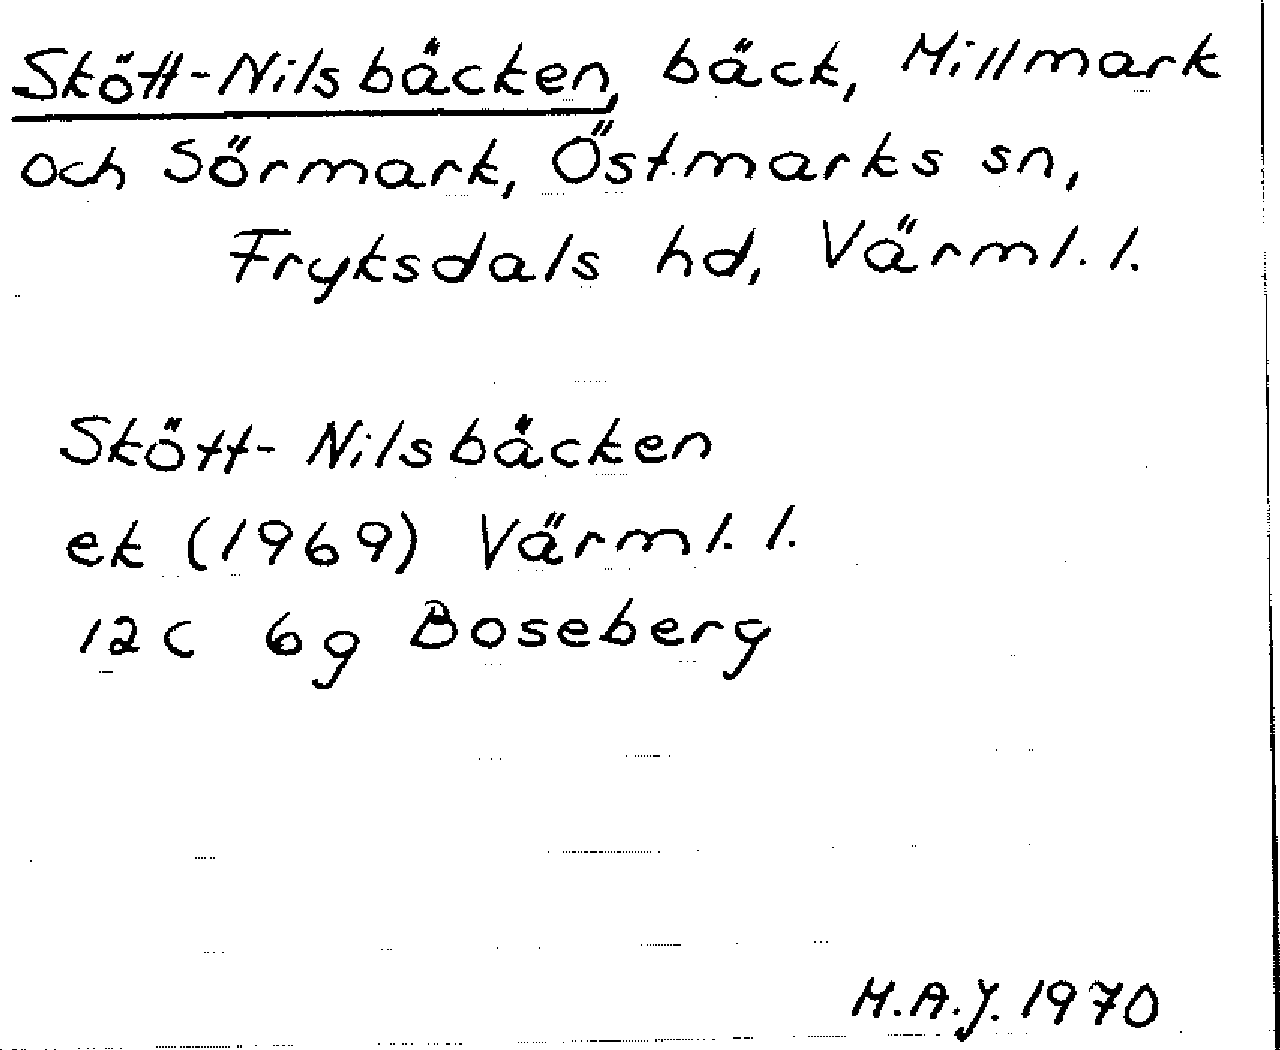 Skött-Nilsbäcken, bäck, Millmark
och Sörmark, Östmarks sn,
Fryksdals hd, Värml. l.
Skött-Nilsbäcken
ek (1969) Värml. l.
12C 6g Boseberg
H.A.J. 1970